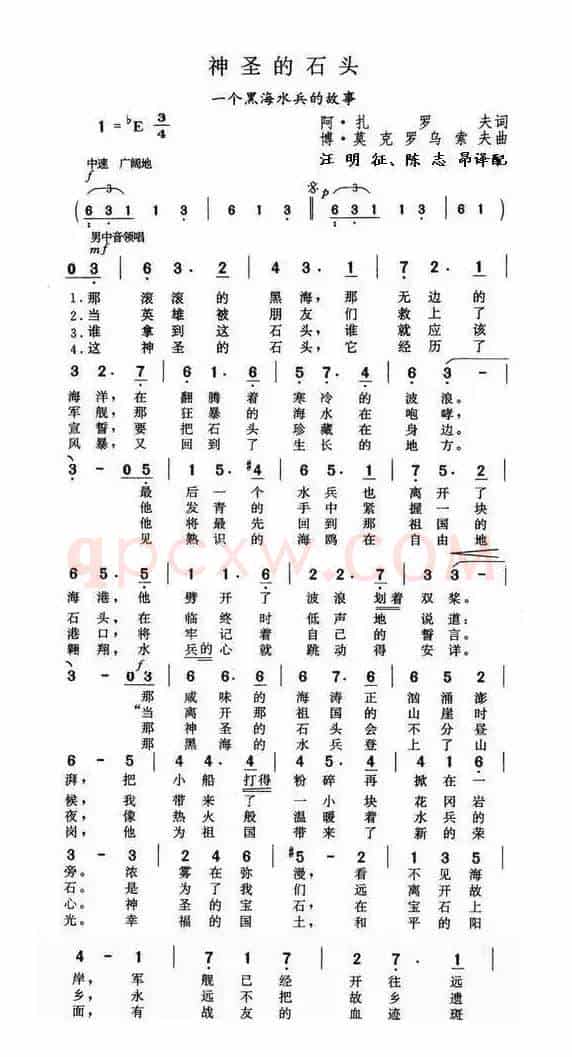 神圣的石头
一个黑海水兵的故事
1=♭E 3/4
阿·扎罗夫词
博·莫克罗乌索夫曲
汪明征、陈志昂译配
中速 广阔地
f
p
( 6 3 1 1 3 | 6 1 3 ‖ 6 3 1 1 3 | 6 1 3 )
男中音领唱
mf
0 3 | 6 3· 2 | 4 3· 1 | 7 2· 1
1.那滚滚的黑海，那无边的
2.当英雄被朋友们救上了
3.谁拿到这石头，谁就应该
4.这神圣的石头，它经历了
3 2· 7 | 6 1· 6 | 5 7· 4 | 6 3 -
海洋，在翻腾着寒冷的波浪。
军舰，那狂暴的海水在咆哮，
宣誓；要把石头珍藏在身边。
风暴，又回到了生长的地方。
3 - 0 5 | 1 5· #4 | 5 1· 7 | 7 5· 2
最后一个水兵也离开了
他发青的手中紧握一块
他将最先回到那祖国的
见熟识的海鸥在自由地
qpcxw.COM
6 5· 5 | 1 2 1· 6 | 7 2 1· 7 | 3 3 -
海港，他劈开了波浪划着双桨。
石头，在临终时低声地说道：
港口，将牢记着自己的誓言。
翱翔，水兵的心就跳动得安详。
f
3 - 0 3 | 1 7· 6 | 3 1· 6 | 1 7· 2
那咸味的海涛正汹涌澎
“当离开那祖国的山崖时
那神圣的石头会分昼
那黑海的水兵登上了山
6 - 5 | 4 4· 4 | 4 5· 4 | 4 1 6
湃，把小船打得粉碎再掀在一
候，我带来了一小块花冈岩
夜，像热火般温暖着水兵的
岗，他为祖国带来了新的荣
3 - 3 | 7 2 4 6 | #5 - 2 | 2 1 3
旁。浓雾在弥漫，看不见海
石。是为了我们远离开故
心。神圣的宝石，在宝石上
光。幸福的国土，和平的阳
4 - 1 | 7 1 7 | 7 1 | 2 7· 1
岸，军舰已经开往远
乡，永远不把故乡遗
面，有战友的血迹斑